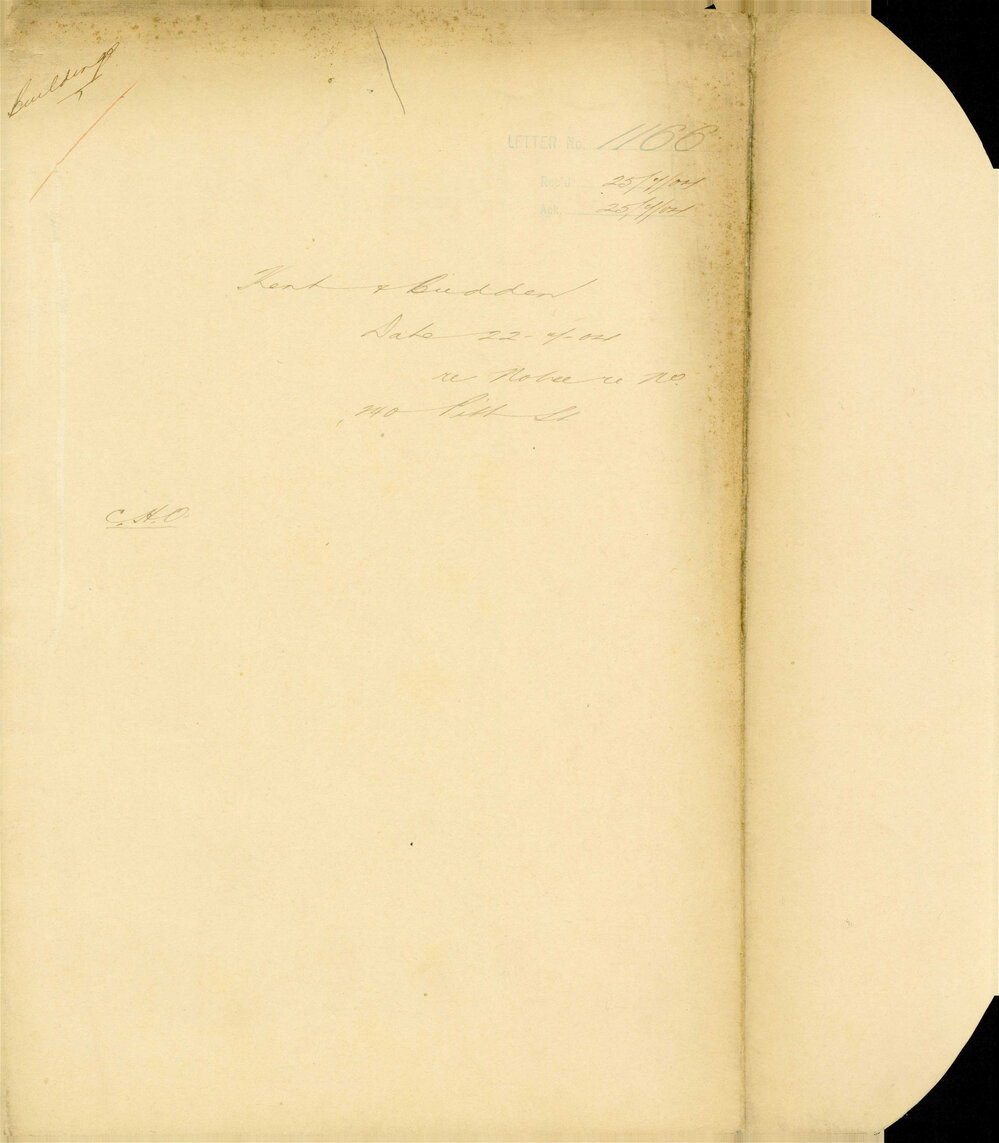 Buildings
LETTER No. 1166
Rec'd 25/4/04
Ack. 25/4/04
Kent & Budden
Date 22-4-04
re Notice re No.
240 Pitt St
C.H.O.